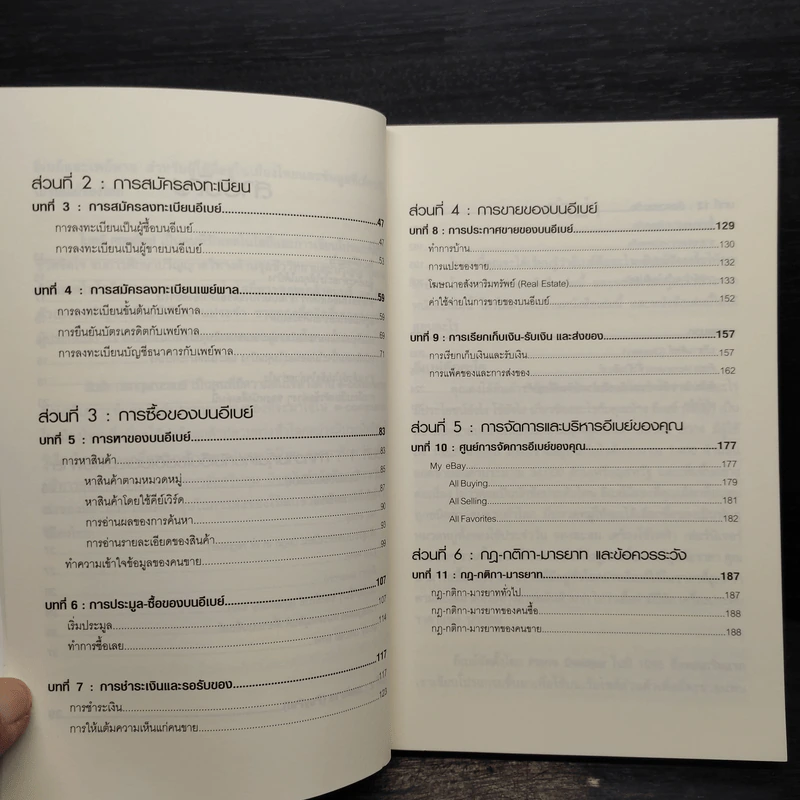 ส่วนที่ 2 : การสมัครลงทะเบียน
บทที่ 3 : การสมัครลงทะเบียนอีเบย์ 47
การลงทะเบียนเป็นผู้ซื้อบนอีเบย์ 47
การลงทะเบียนเป็นผู้ขายบนอีเบย์ 51
บทที่ 4 : การสมัครลงทะเบียนเพย์พาล 59
การลงทะเบียนขั้นต้นกับเพย์พาล 59
การยืนยันบัตรเครดิตกับเพย์พาล 69
การลงทะเบียนบัญชีธนาคารกับเพย์พาล 71
ส่วนที่ 3 : การซื้อของบนอีเบย์
บทที่ 5 : การหาของบนอีเบย์ 83
การหาสินค้า 83
หาสินค้าตามหมวดหมู่ 85
หาสินค้าโดยใช้คีย์เวิร์ด 87
การอ่านผลของการค้นหา 90
การอ่านรายละเอียดของสินค้า 93
ทำความเข้าใจข้อมูลของคนขาย 99
บทที่ 6 : การประมูล-ซื้อของบนอีเบย์ 107
เริ่มประมูล 107
ทำการซื้อเลย 114
บทที่ 7 : การชำระเงินและรอรับของ 117
การชำระเงิน 117
การให้แต้มความเห็นแก่คนขาย 123
ส่วนที่ 4 : การขายของบนอีเบย์
บทที่ 8 : การประกาศขายของบนอีเบย์ 129
ทำการบ้าน 130
การแปะของขาย 132
โฆษณาอสังหาริมทรัพย์ (Real Estate) 133
ค่าใช้จ่ายในการขายของบนอีเบย์ 152
บทที่ 9 : การเรียกเก็บเงิน-รับเงิน และส่งของ 157
การเรียกเก็บเงินและรับเงิน 157
การแพ็คของและการส่งของ 162
ส่วนที่ 5 : การจัดการและบริหารอีเบย์ของคุณ
บทที่ 10 : ศูนย์การจัดการอีเบย์ของคุณ 177
My eBay 177
All Buying 179
All Selling 181
All Favorites 182
ส่วนที่ 6 : กฎ-กติกา-มารยาท และข้อควรระวัง
บทที่ 11 : กฎ-กติกา-มารยาท 187
กฎ-กติกา-มารยาททั่วไป 187
กฎ-กติกา-มารยาทของคนซื้อ 188
กฎ-กติกา-มารยาทของคนขาย 188